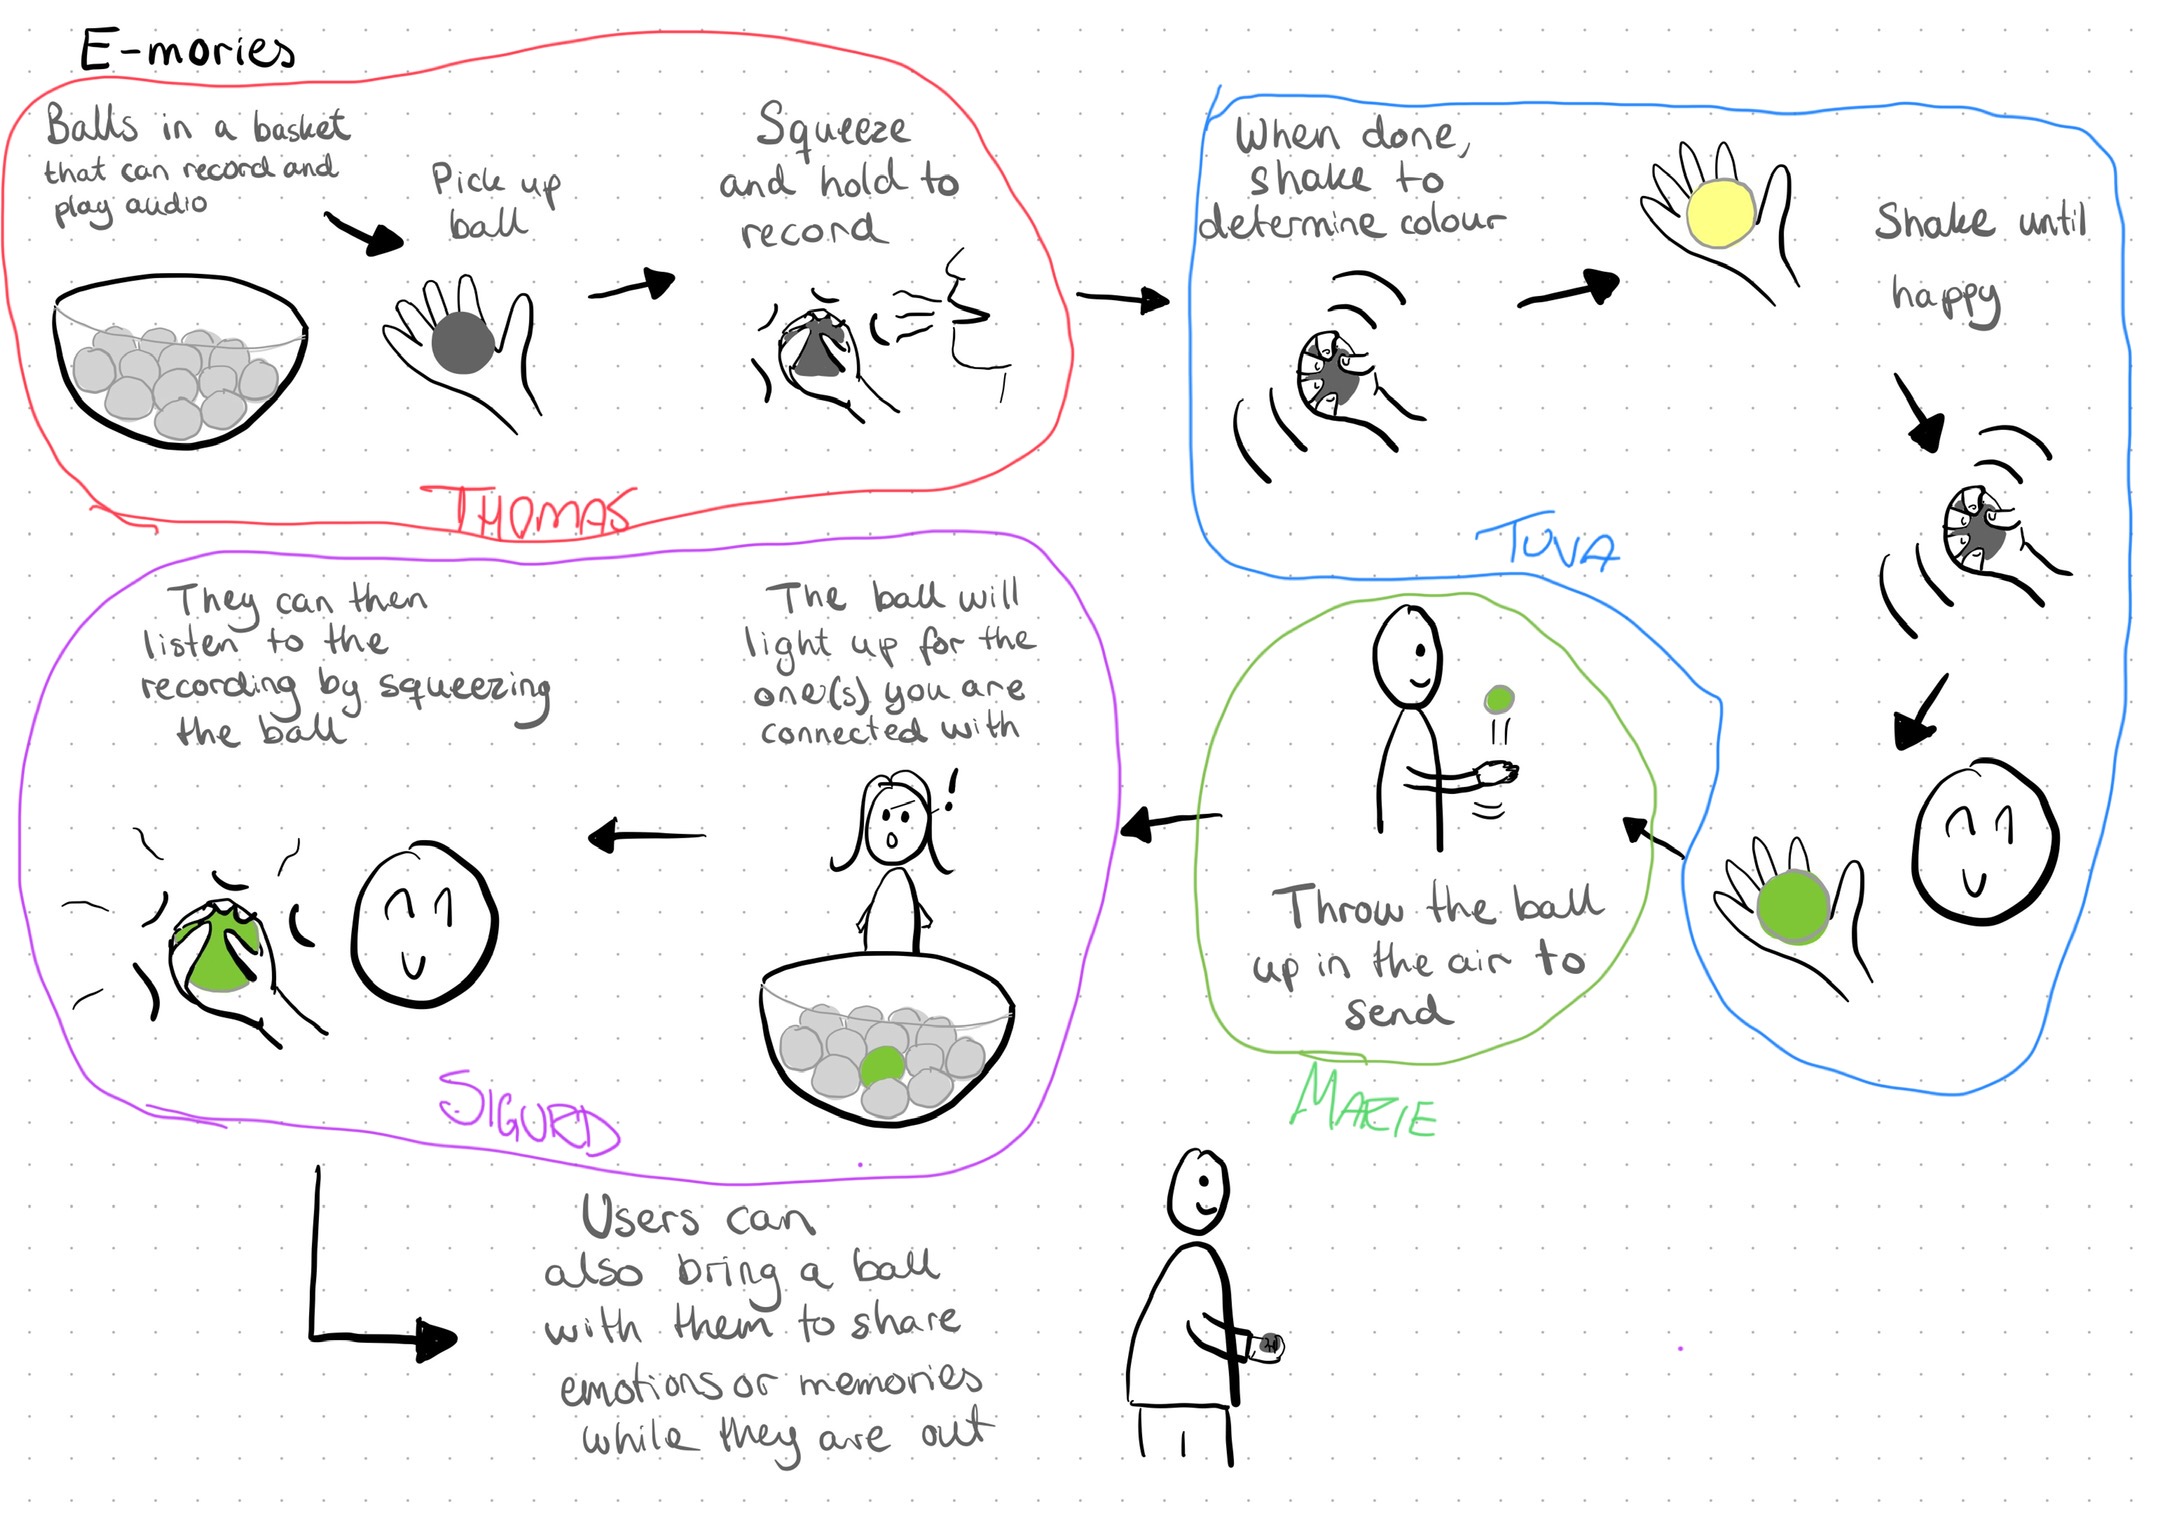 E-mories
Balls in a basket
that can record and
play audio
Pick up
ball
Squeeze
and hold to
record
THOMAS
When done,
shake to
determine colour
Shake until
happy
TUVA
Throw the ball
up in the air to
send
MARIE
The ball will
light up for the
one(s) you are
connected with
!
They can then
listen to the
recording by squeezing
the ball
SIGURD
Users can
also bring a ball
with them to share
emotions or memories
while they are out